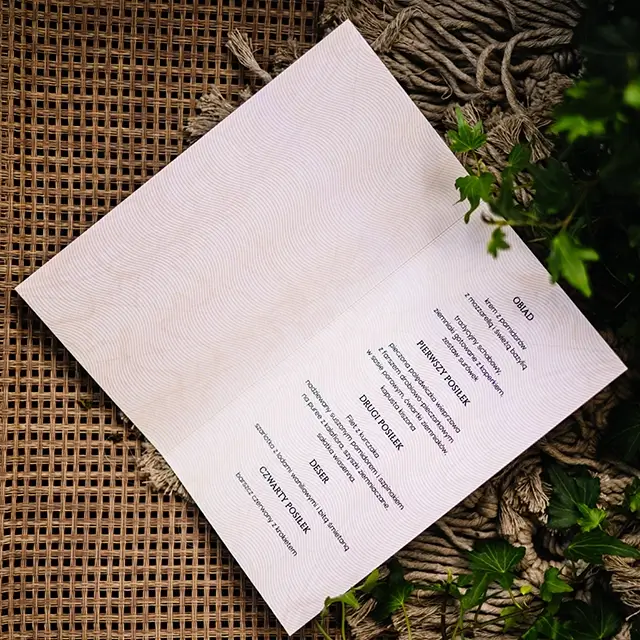 OBIAD
krem z pomidorów
z mozzarellą i świeżą bazylią
tradycyjny schabowy,
ziemniaki gotowane z koperkiem,
zestaw surówek
PIERWSZY POSIŁEK
pieczona polędwiczka wieprzowa
z farszem grzybowo-pieczarkowym
w sosie porowym, ćwiartki ziemniaków,
kapusta kiszona
DRUGI POSIŁEK
Filet z kurczaka
nadziewany suszonym pomidorem i szpinakiem
na purée z kalafiora, szpyzki ziemniaczane,
sałatka wiosenna
DESER
szarlotka z lodami waniliowymi i bitą śmietaną
CZWARTY POSIŁEK
barszcz czerwony z krokietem